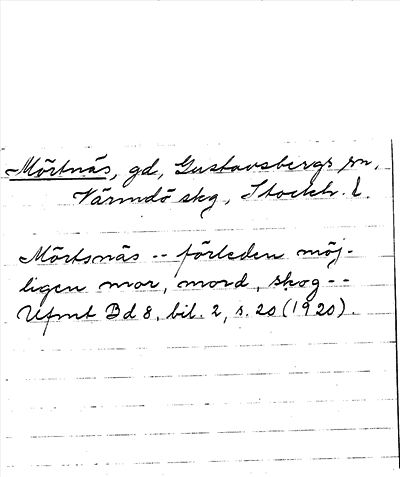 Mörtnäs, gd, Gustavsbergs sn,
Värmdö skg, Stockh. l.
Mörtsnäs -- förleden möj-
ligen mor, mord, skog --
Ufmt Bd 8, bil. 2, s. 20 (1920).